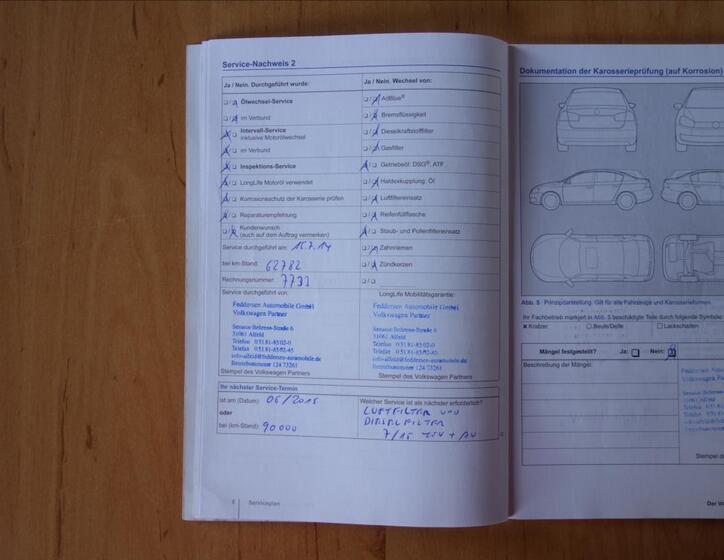 Service-Nachweis 2
Ja / Nein. Durchgeführt wurde:
Ölwechsel-Service
im Verbund
Intervall-Service
inklusive Motorölwechsel
im Verbund
Inspektions-Service
LongLife Motoröl verwendet
Korrosionsschutz der Karosserie prüfen
Reparaturempfehlung
Kundenwunsch
(auch auf dem Auftrag vermerken)
Service durchgeführt am: 15.7.14
bei km-Stand: 62782
Rechnungsnummer: 7731
Service durchgeführt von:
Feddersen Automobile GmbH
Volkswagen Partner
31061 Alfeld
Telefon 05181-8502-0
Telefax 05181-8502-45
info-alfeld@feddersen-automobile.de
Betriebsnummer 124 73261
Stempel des Volkswagen Partners
Ja / Nein. Wechsel von:
AdBlue®
Bremsflüssigkeit
Dieselkraftstofffilter
Gasfilter
Getriebeöl: DSG®, ATF
Haldexkupplung: Öl
Luftfiltereinsatz
Reifenfüllflasche
Staub- und Pollenfiltereinsatz
Zahnriemen
Zündkerzen
LongLife Mobilitätsgarantie:
Feddersen Automobile GmbH
Volkswagen Partner
31061 Alfeld
Telefon 05181-8502-0
Telefax 05181-8502-45
info-alfeld@feddersen-automobile.de
Betriebsnummer 124 73261
Stempel des Volkswagen Partners
Ihr nächster Service-Termin
ist am (Datum): 06/2015
oder
bei (km-Stand): 90000
Welcher Service ist als nächster erforderlich?
LUFTFILTER UND
DIESELFILTER
7/15 TÜV + AU
8 Serviceplan
Dokumentation der Karosserieprüfung (auf Korrosion)
Abb. 5 Prinzipdarstellung: Gilt für alle Fahrzeuge und Karosserieformen.
Ihr Fachbetrieb markiert in Abb. 5 beschädigte Teile durch folgende Symbole:
Kratzer Beule/Delle Lackschäden
Mängel festgestellt? Ja: Nein:
Beschreibung der Mängel:
Feddersen
Volkswagen
31061 Alfeld
Telefon
Telefax
Stempel d